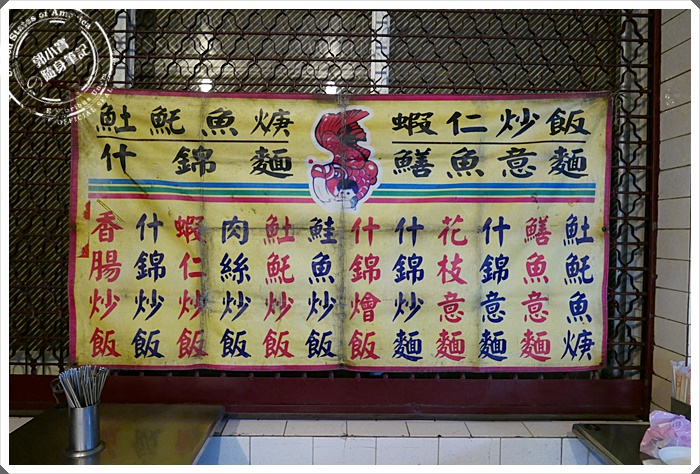 土魠魚焿
什錦麵
蝦仁炒飯
鱔魚意麵
土魠魚焿
鱔魚意麵
什錦意麵
花枝意麵
什錦炒麵
什錦燴飯
鮭魚炒飯
土魠炒飯
肉絲炒飯
蝦仁炒飯
什錦炒飯
香腸炒飯
郭小寶
隨身筆記